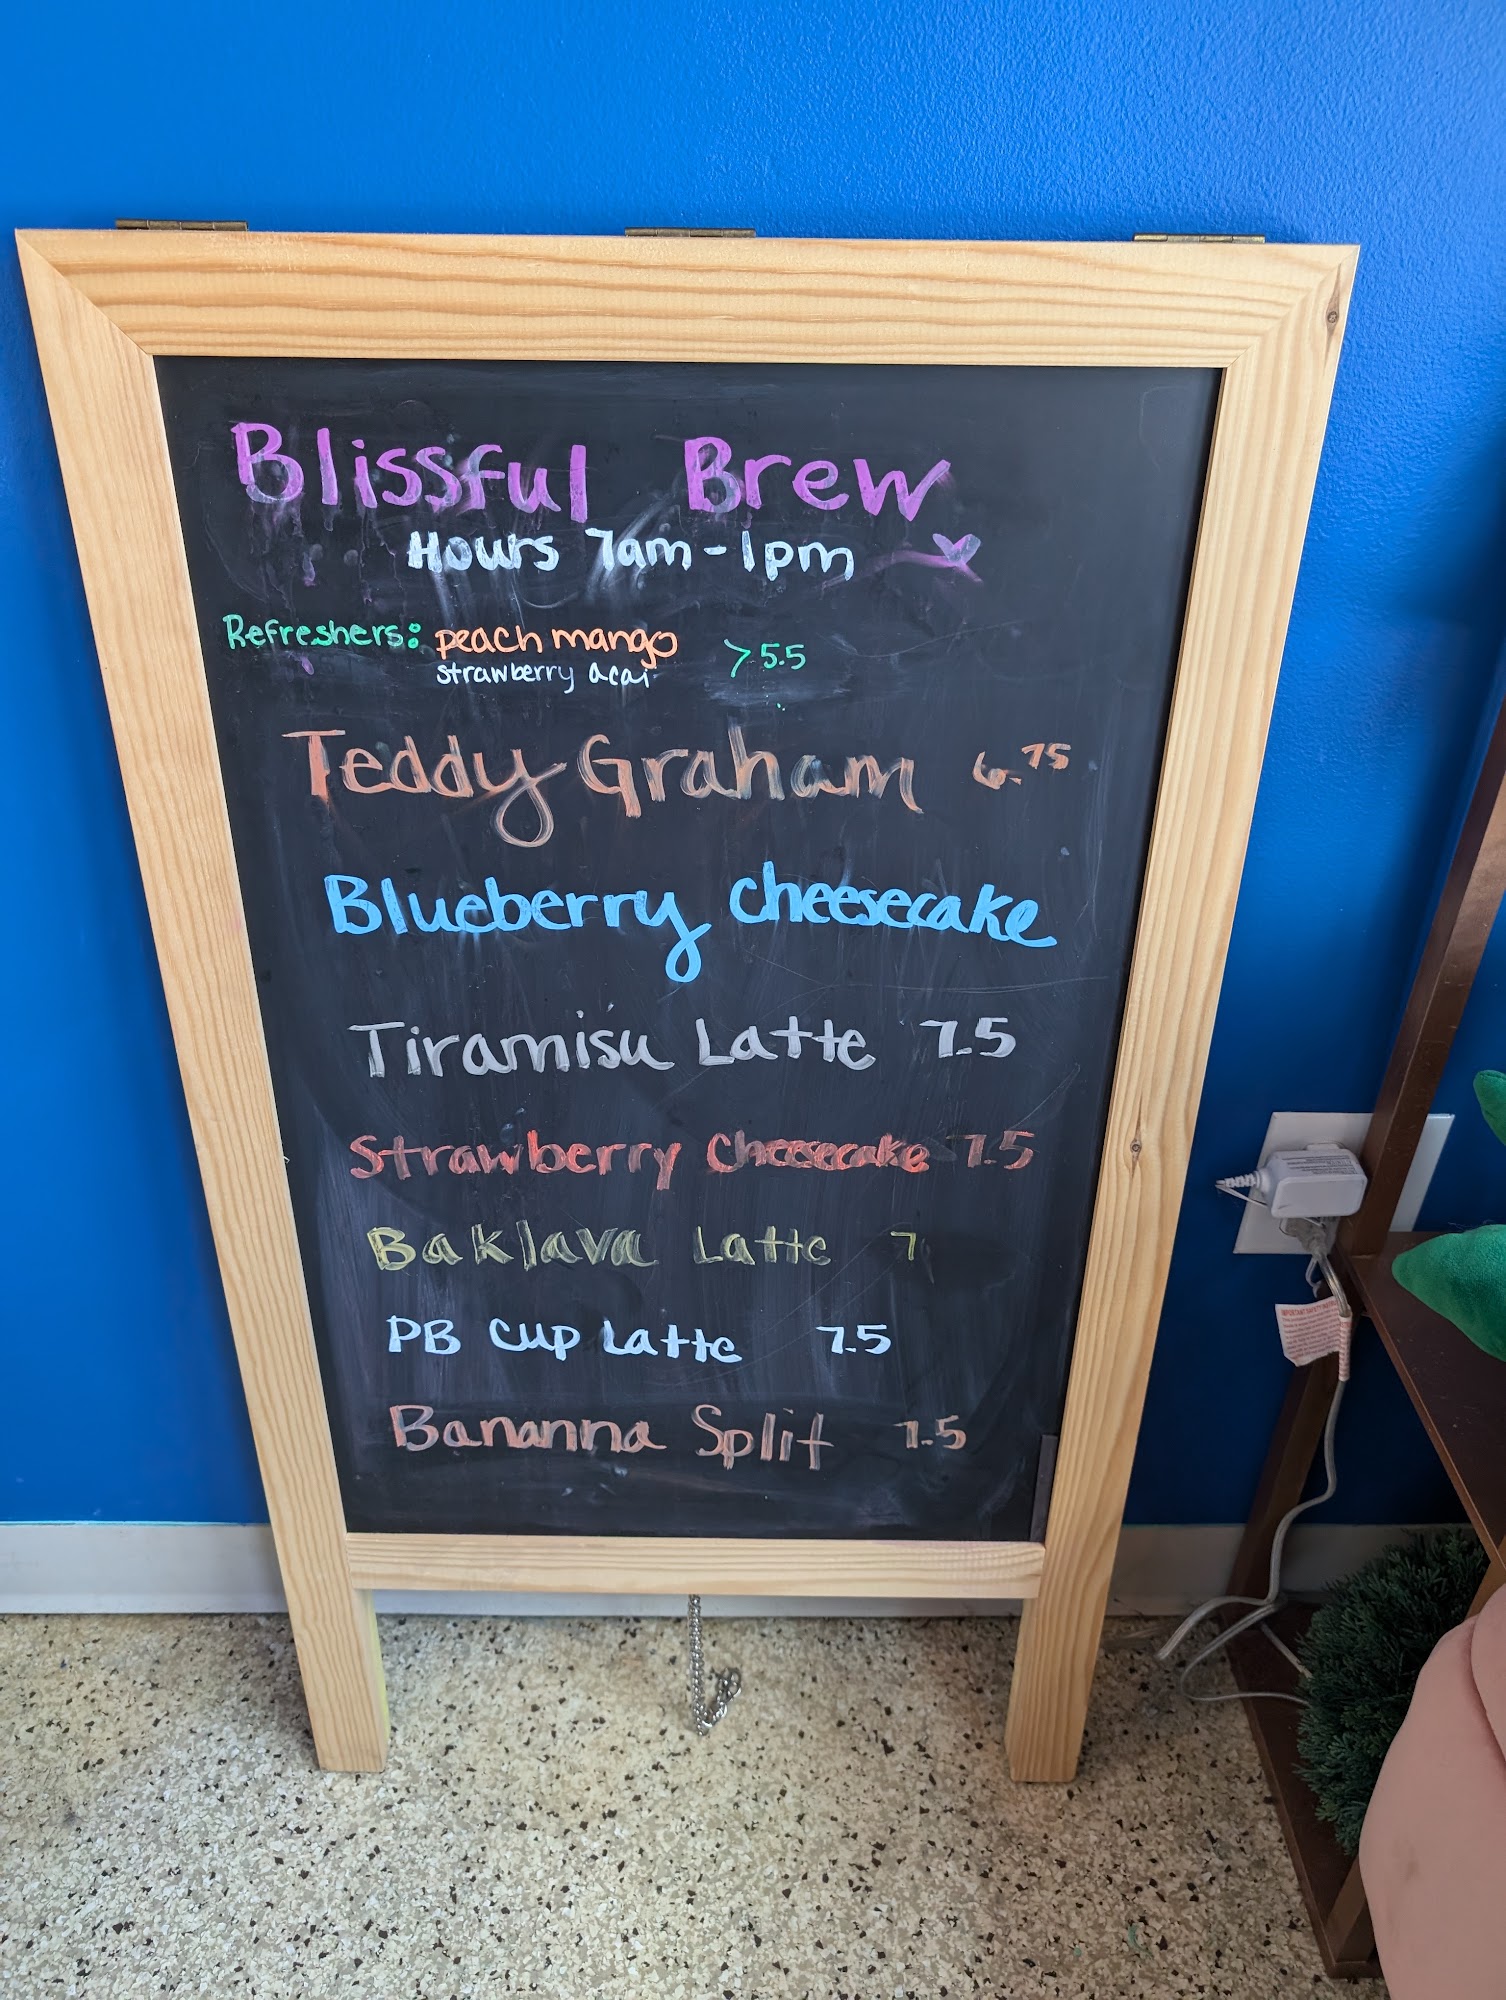 Blissful Brew
Hours 7am-1pm
Refreshers: peach mango > 5.5
strawberry acai
Teddy Graham 6.75
Blueberry cheesecake
Tiramisu Latte 7.5
Strawberry Cheesecake 7.5
Baklava Latte 7
PB Cup Latte 7.5
Bananna Split 7.5